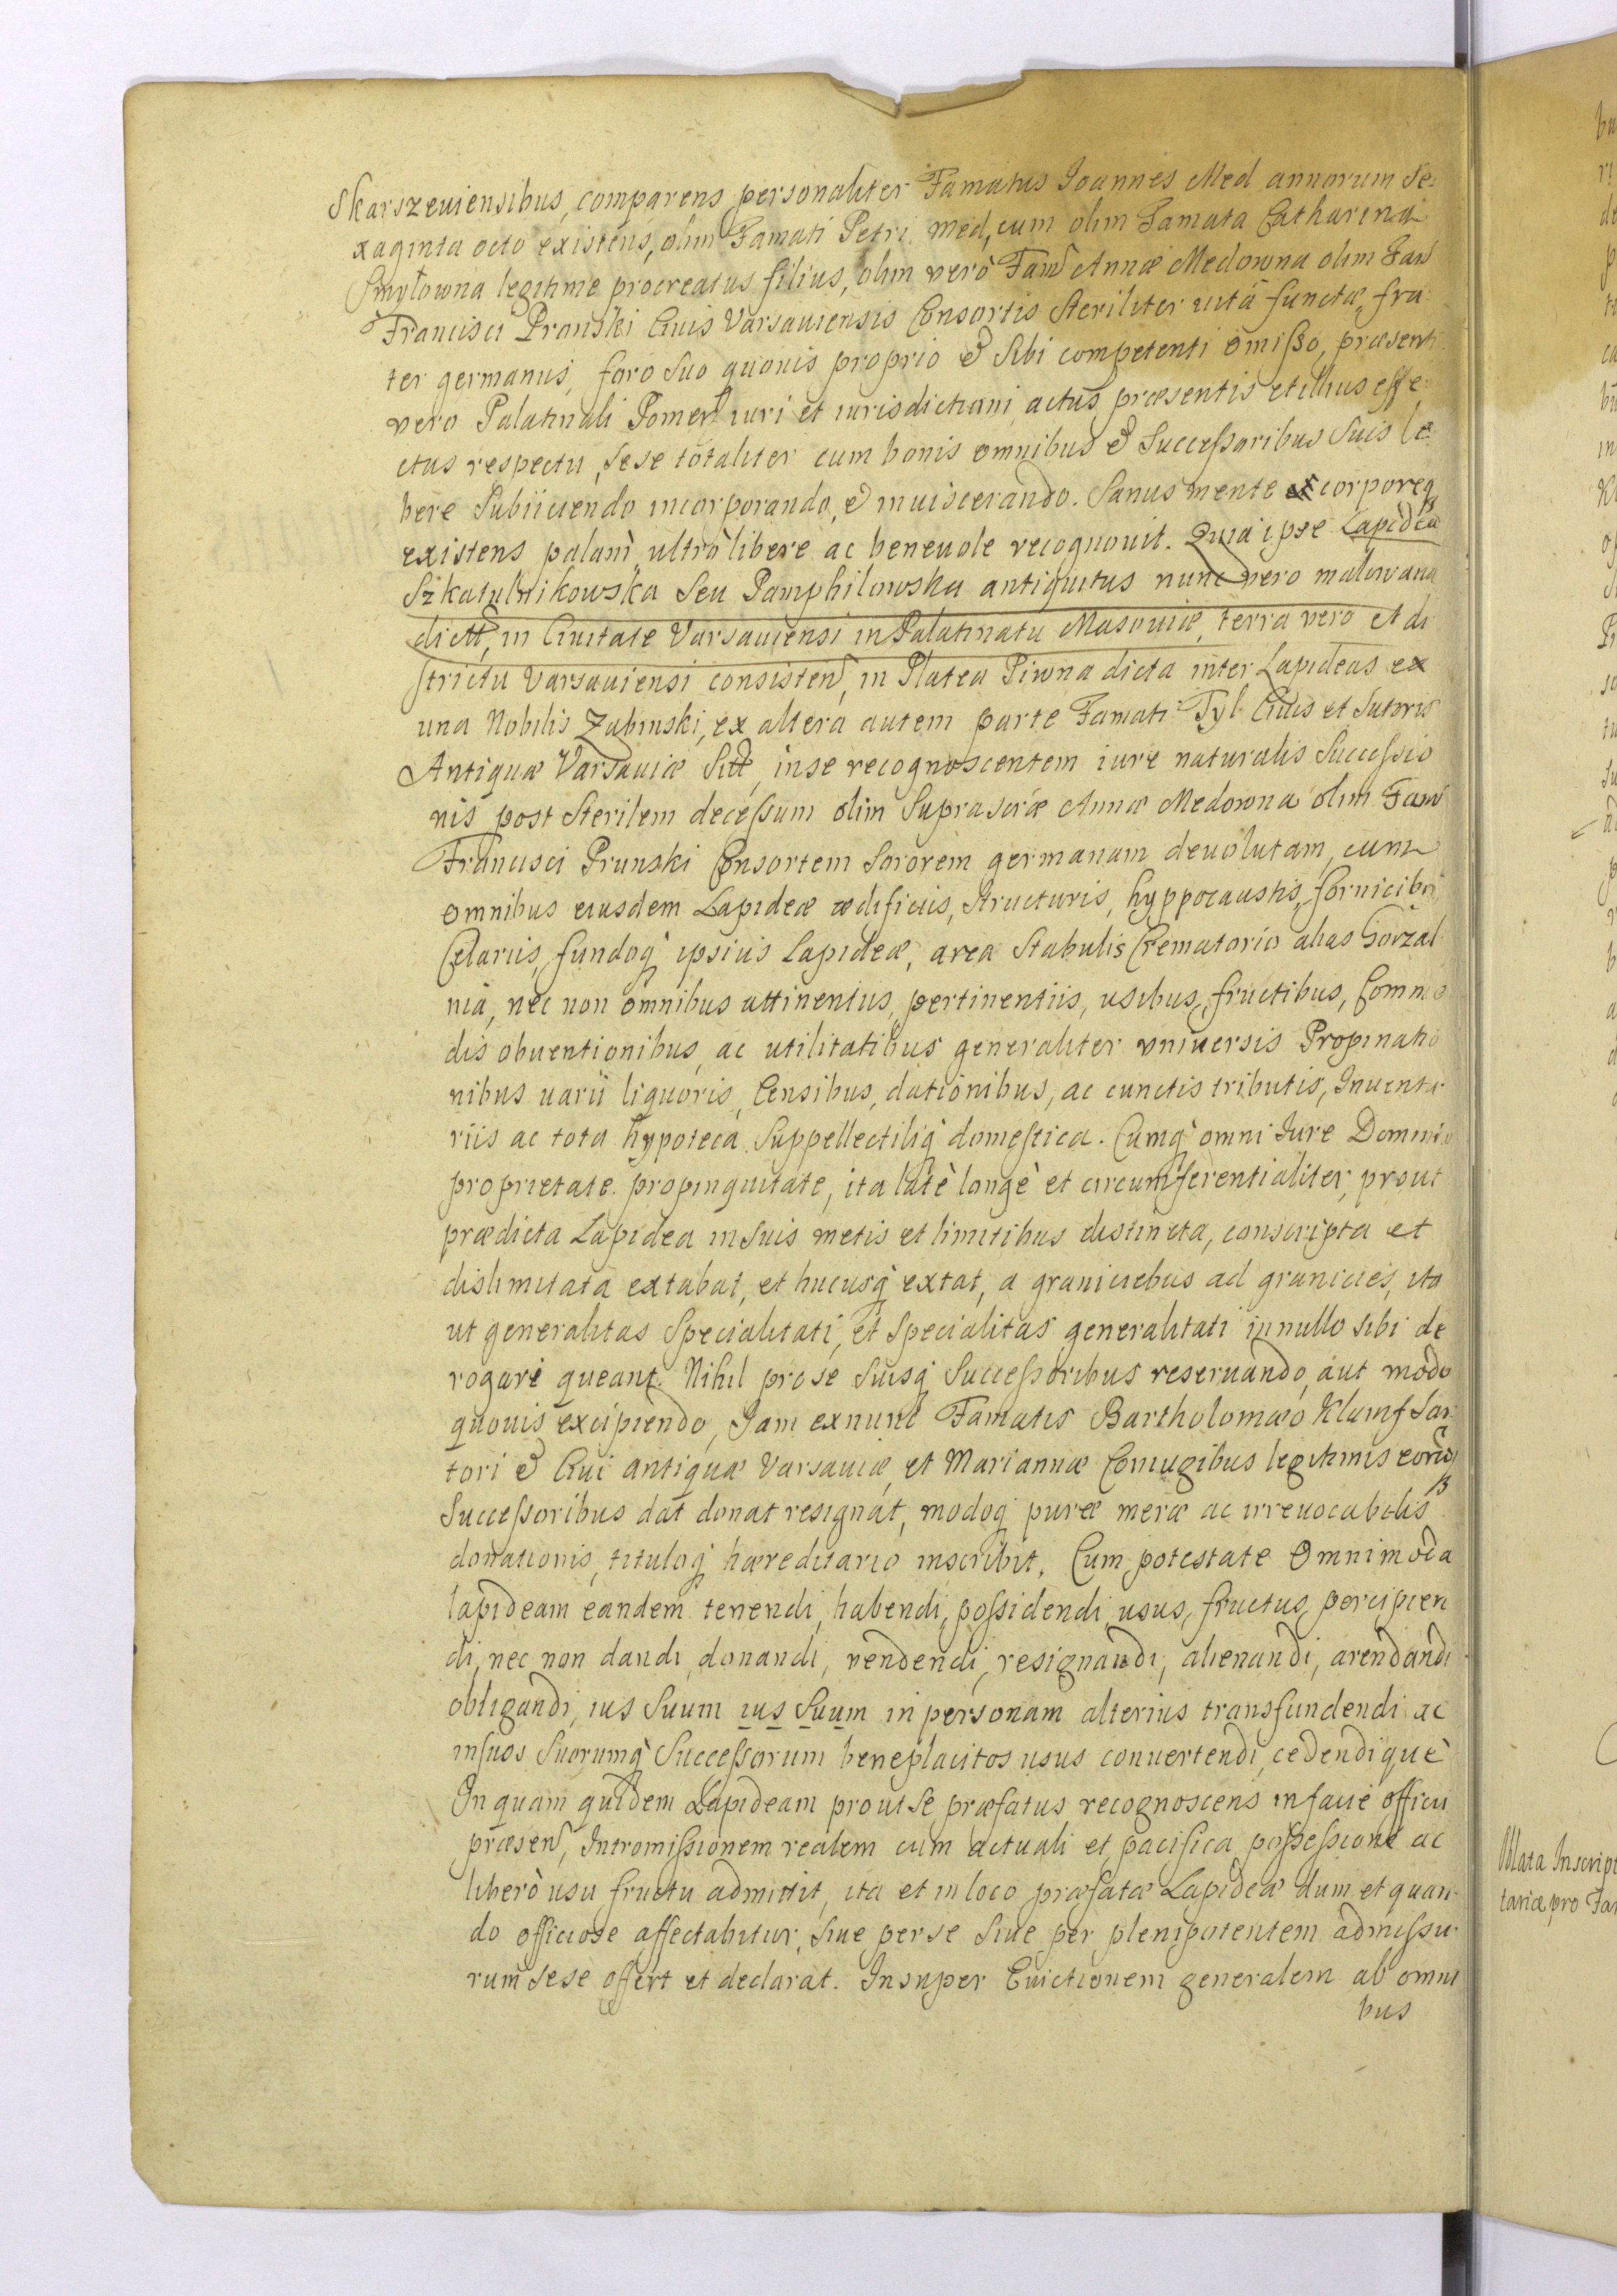 Skarszeviensibus, comparens personaliter Famatus Joannes Med annorum Se-
xaginta octo existens, olim Famati Petri Med, cum olim Famata Catharina
Smytowna legitime procreatus filius, olim verò Fam Annæ Medowna olim Fam
Francisci Pronski Civis Varsaviensis Consortis Steriliter vitâ functæ, fra-
ter germanus, foro suo quovis proprio & sibi competenti omisso, præsenti
vero Palatinali Pomer iuri et iurisdictioni actus præsentis et illius effe-
ctus respectu, sese totaliter cum bonis omnibus & Successoribus suis le-
bere subiiciendo incorporando, & inviscerando. Sanus mente et corporeq
existens palam ultrò libere ac benevole recognovit. Quia ipse Lapidea
Szkatulnikowska Seu Pamphilowska antiquitus nunc vero malowana
dictt, in Civitate Varsaviensi in Palatinatu Masoviæ, terra vero et di
strictu Varsaviensi consisten, in Platea Piwna dicta inter Lapideas ex
una Nobilis Zabinski, ex altera autem parte Famati Tyl Civis et Sutoris
Antiquæ Varsaviæ Sitt, in se recognoscentem iure naturalis Successio
nis post Sterilem decessum olim Suprascræ Annæ Medowna olim Fam
Francisci Prunski Consortem Sororem germanam devolutam, cum
omnibus eiusdem Lapideæ ædificiis, Structuris, hyppocaustis, fornicibq
Celariis, fundoq ipsius Lapideæ, area Stabulis Crematorio alias Gorzal
nia, nec non omnibus attinentiis, pertinentiis, usibus, fructibus, Commo
dis obventionibus, ac utilitatibus generaliter universis Propinatio
nibus varii liquoris, Censibus, dationibus, ac cunctis tributis, Inventa
riis ac tota hypoteca Suppellectiliq domestica. Cumq omni Iure Dominio
proprietate propinquitate, ita latè longè et circumferentialiter, prout
prædicta Lapidea in suis metis et limitibus distincta, conscripta et
dislimitata extabat, et hucusq extat, a graniciebus ad granicies, ita
ut generalitas Specialitati, et Specialitas generalitati in nullo sibi de
rogari queant. Nihil pro se Suisq Successoribus reservando, aut modo
quovis excipiendo, Jam ex nunc Famatis Bartholomæo Klumf Sar
tori & Civi antiquæ Varsaviæ, et Mariannæ Coniugibus legitimis eoruq
Successoribus dat donat resignat, modoq puræ meræ ac irrevocabilis
donationis, tituloq hæreditario inscribit. Cum potestate Omnimoda
lapideam eandem tenendi, habendi, possidendi, usus, fructus percipien
di, nec non dandi, donandi, vendendi, resignandi, alienandi, arendandi
obligandi, ius Suum ius Suum in personam alterius transfundendi ac
in suos Suorumq Successorum beneplacitos usus convertendi, cedendique
In quam quidem Lapideam prout se præfatus recognoscens in facie officii
præsen, Intromissionem realem cum actuali et pacifica possessione ac
liberò usu fructu admittit, ita et in loco præfatæ Lapideæ dum et quan-
do officiose affectabitur, Sive per se Sive per plenipotentem admissu-
rum Sese offert et declarat. Insuper Evictionem generalem ab omni
bus